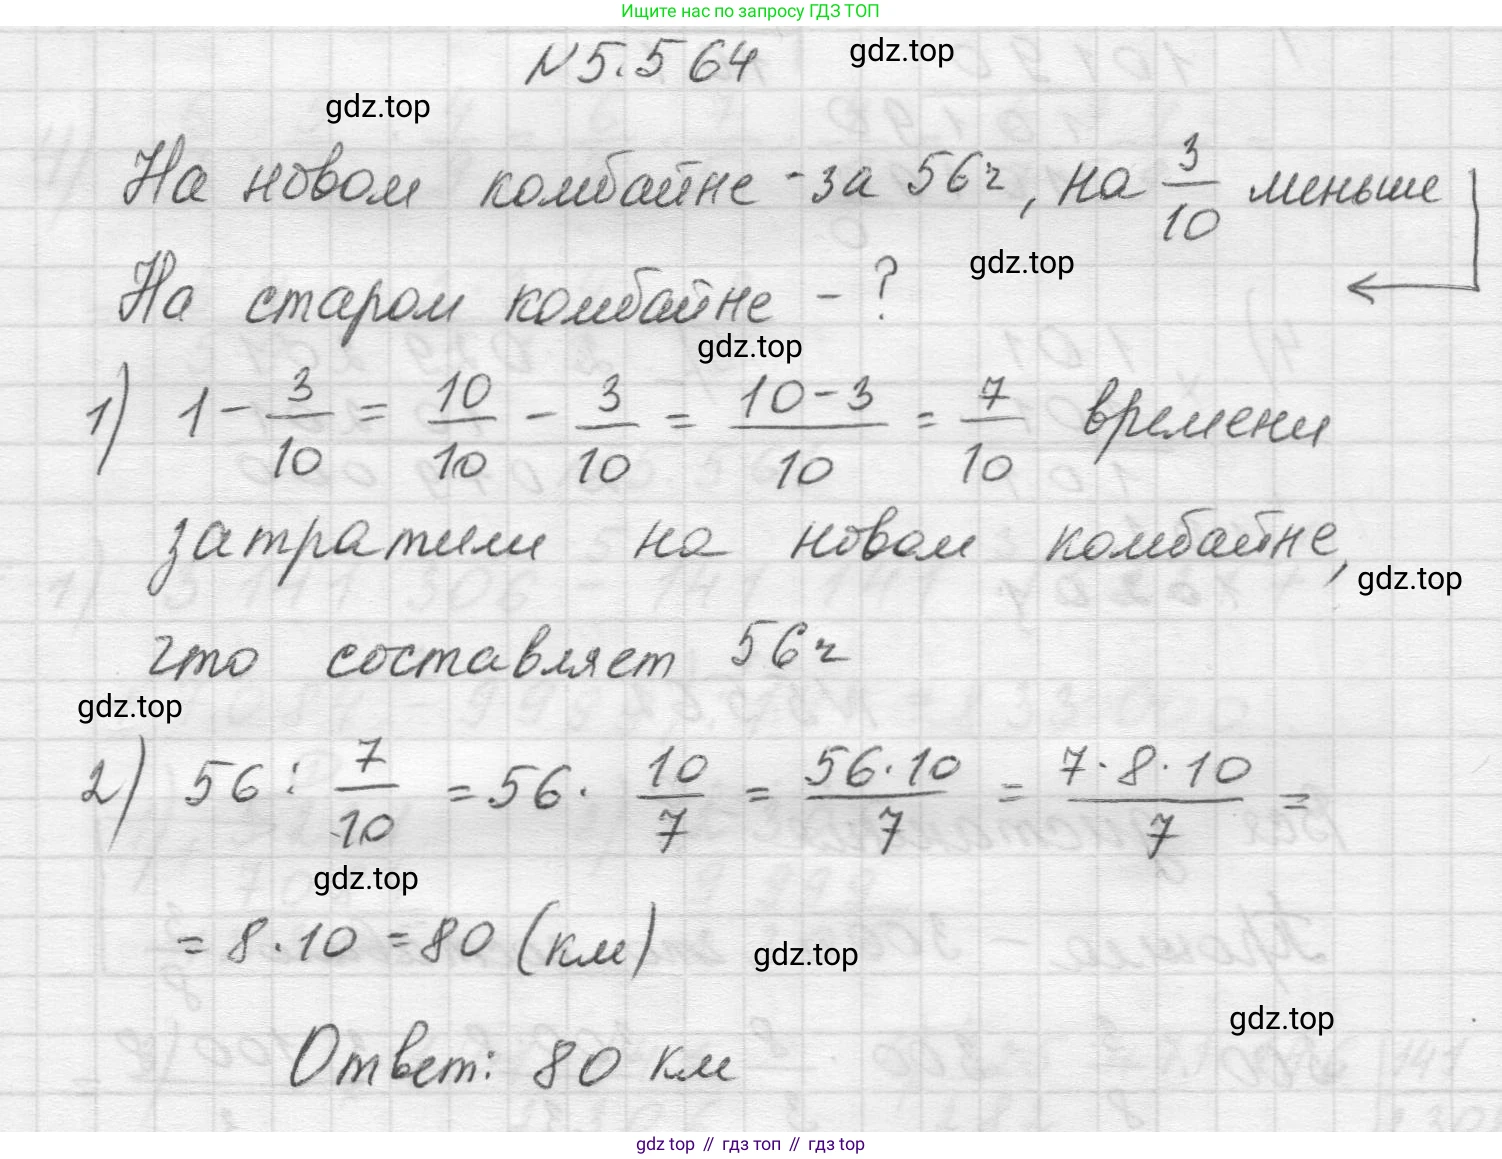 Ищите нас по запросу ГДЗ ТОП
№5.564
gdz.top
gdz.top
На новом комбайне - за 56ч, на 3/10 меньше
gdz.top
На старом комбайне - ?
gdz.top
1) 1 - 3/10 = 10/10 - 3/10 = (10-3)/10 = 7/10 времени
затратили на новом комбайне,
gdz.top
что составляет 56ч
gdz.top
2) 56 : 7/10 = 56 · 10/7 = (56·10)/7 = (7·8·10)/7 =
gdz.top
= 8·10 = 80 (км)
gdz.top
gdz.top
Ответ: 80 км
gdz top // гдз топ // гдз top